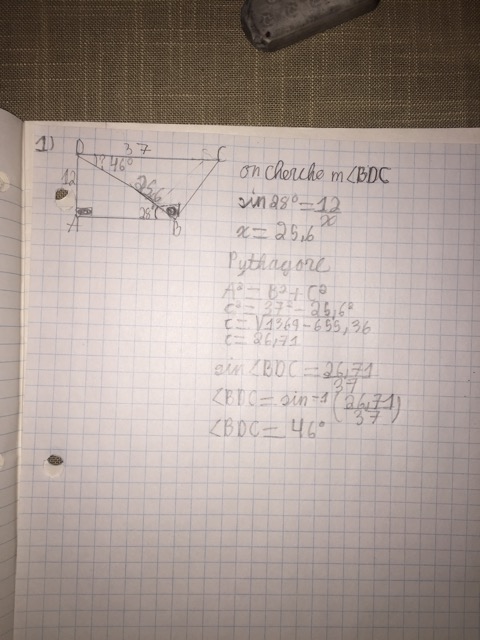 1)
D 37 C
? 46°
12
25,6
28°
A B
on cherche m∠BDC
sin28° = 12/x
x = 25,6
Pythagore
A² = B² + C²
c² = 37² - 25,6²
c = √1369 - 655,36
c = 26,71
sin∠BDC = 26,71/37
∠BDC = sin-1 (26,71/37)
∠BDC = 46°